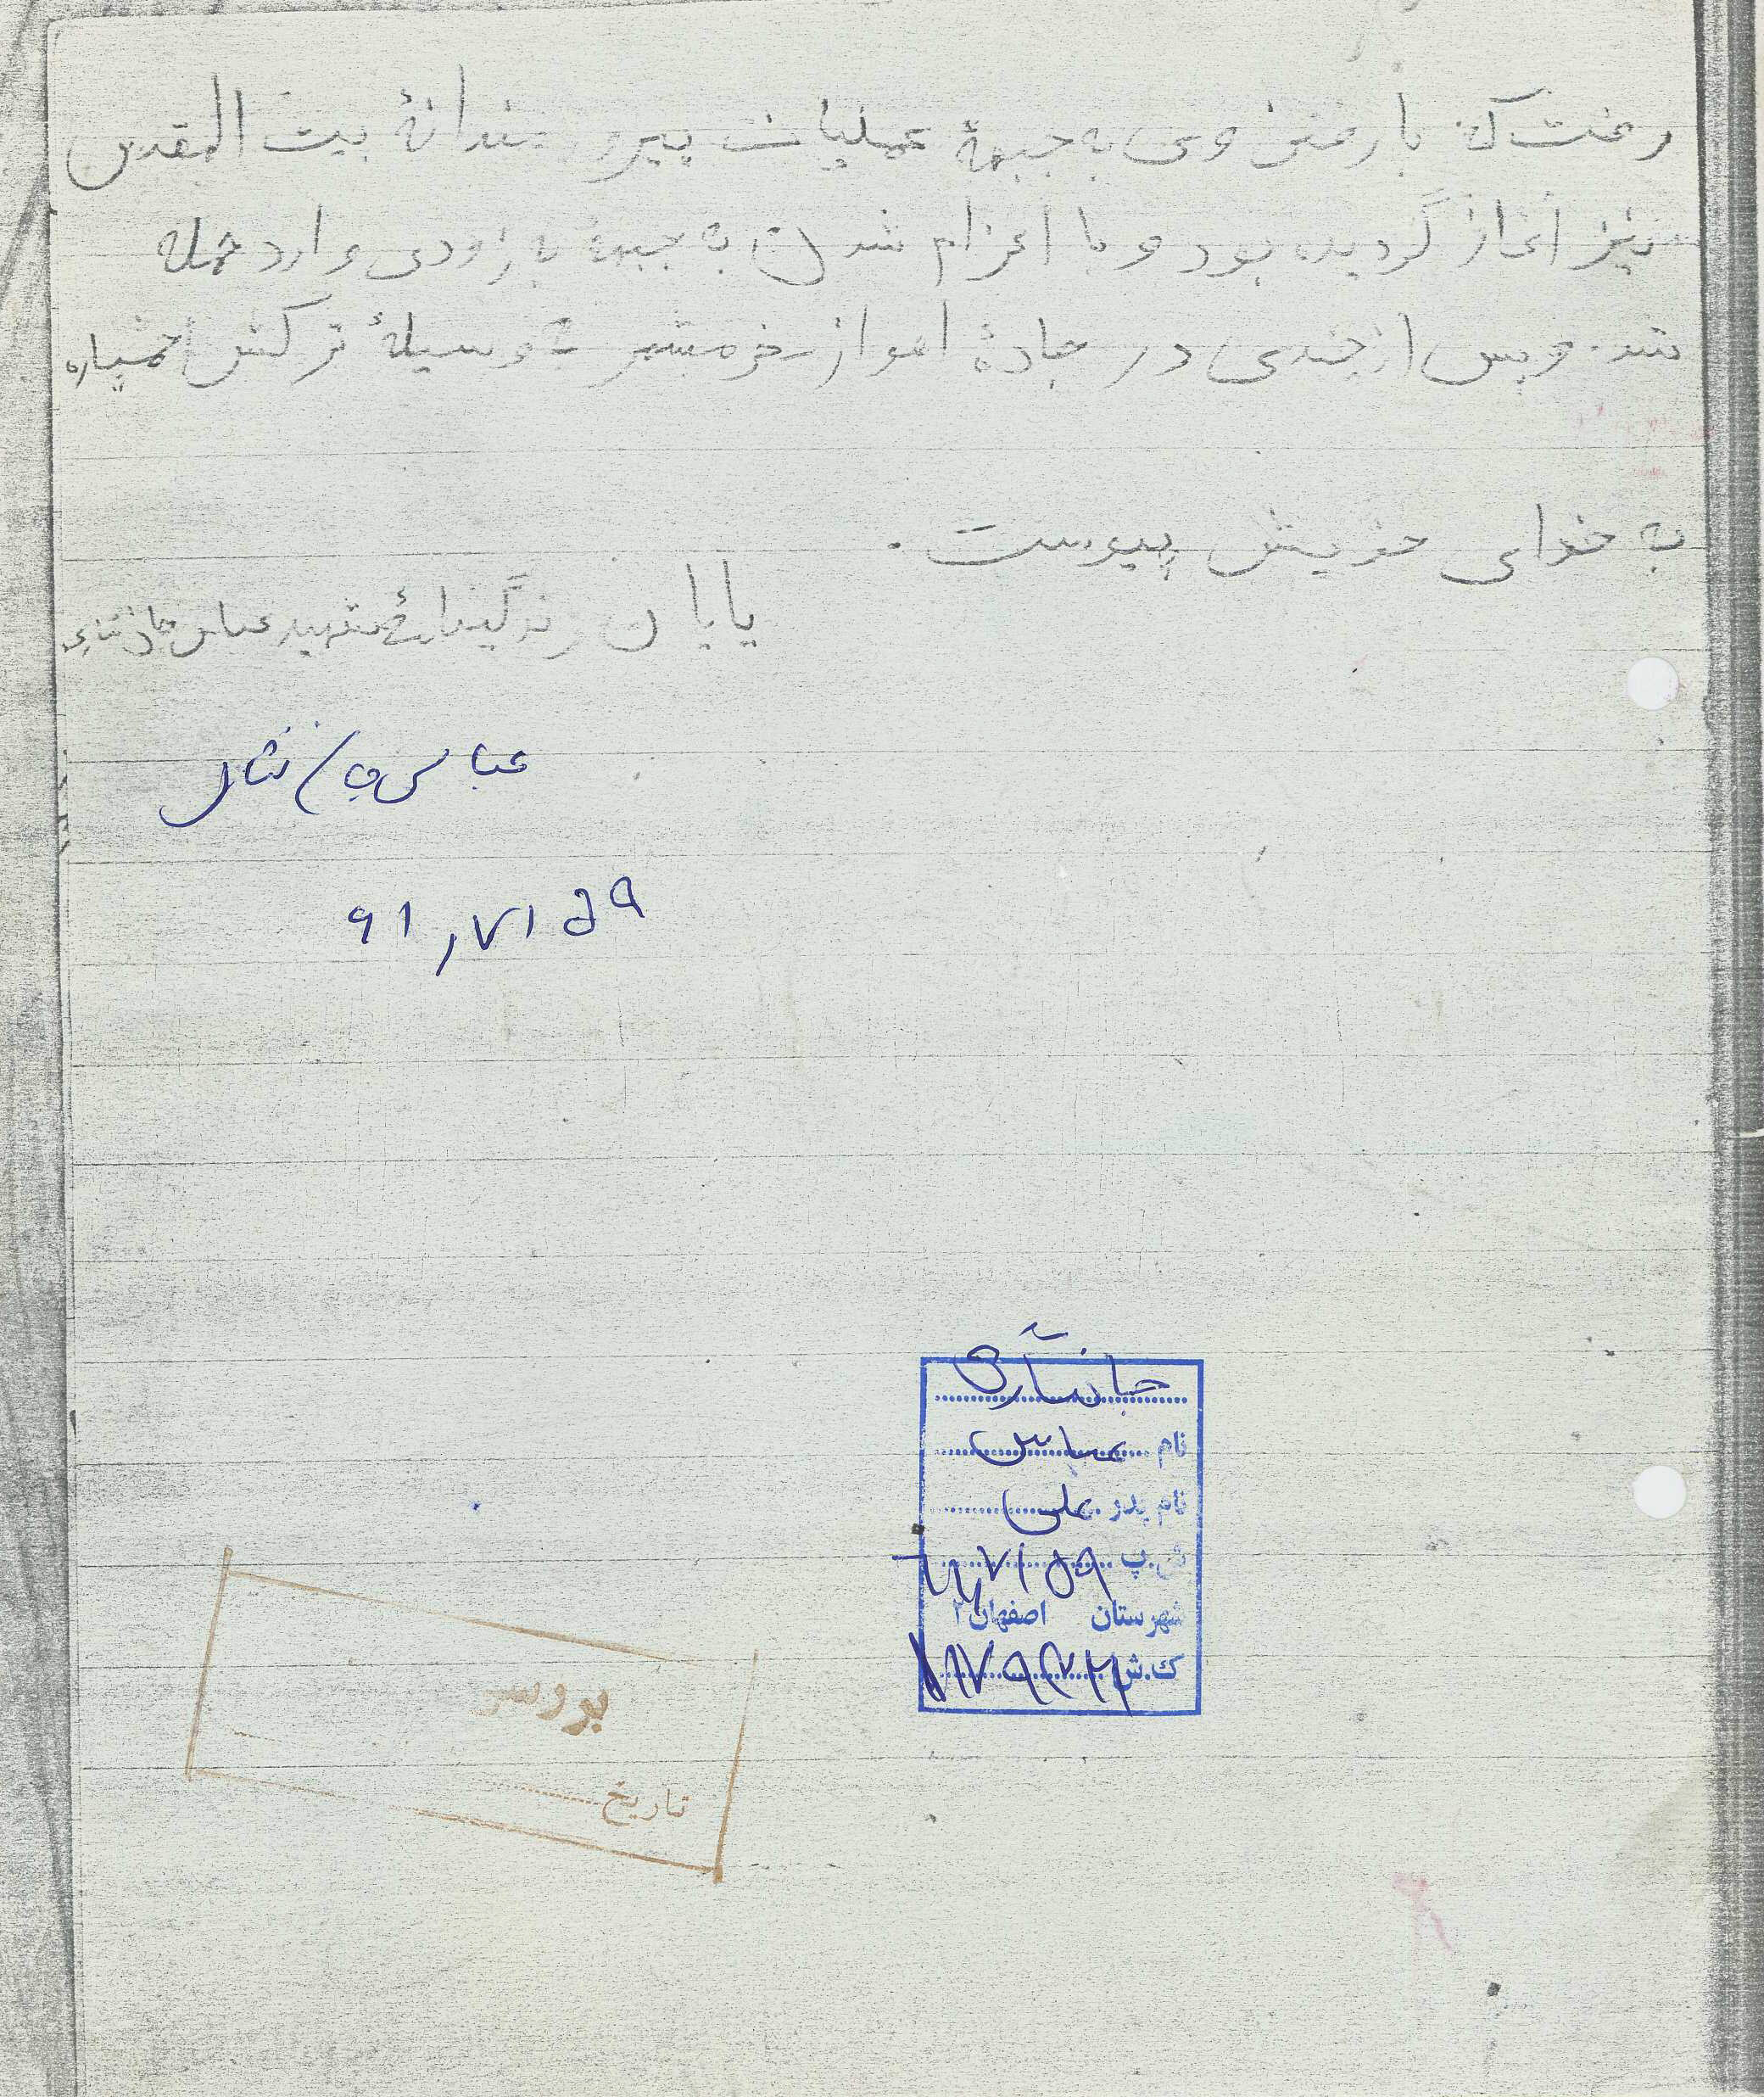 رفت که با رفتن وی به جبههٔ عملیات پیروزمندانهٔ بیت المقدس
نیز آغاز گردیده بود و با اعزام شدن به جبهه به زودی وارد حمله
شد. و پس از چندی در جادهٔ اهواز خرمشهر به وسیلهٔ ترکش خمپاره
به خدای خویش پیوست.
پایان زندگینامهٔ شهید عباس جان نثاری
عباس جان نثاری
جانثاری
نام عباس
نام پدر علی
ش.پ
شهرستان اصفهان ۲
ک.ش
تاریخ